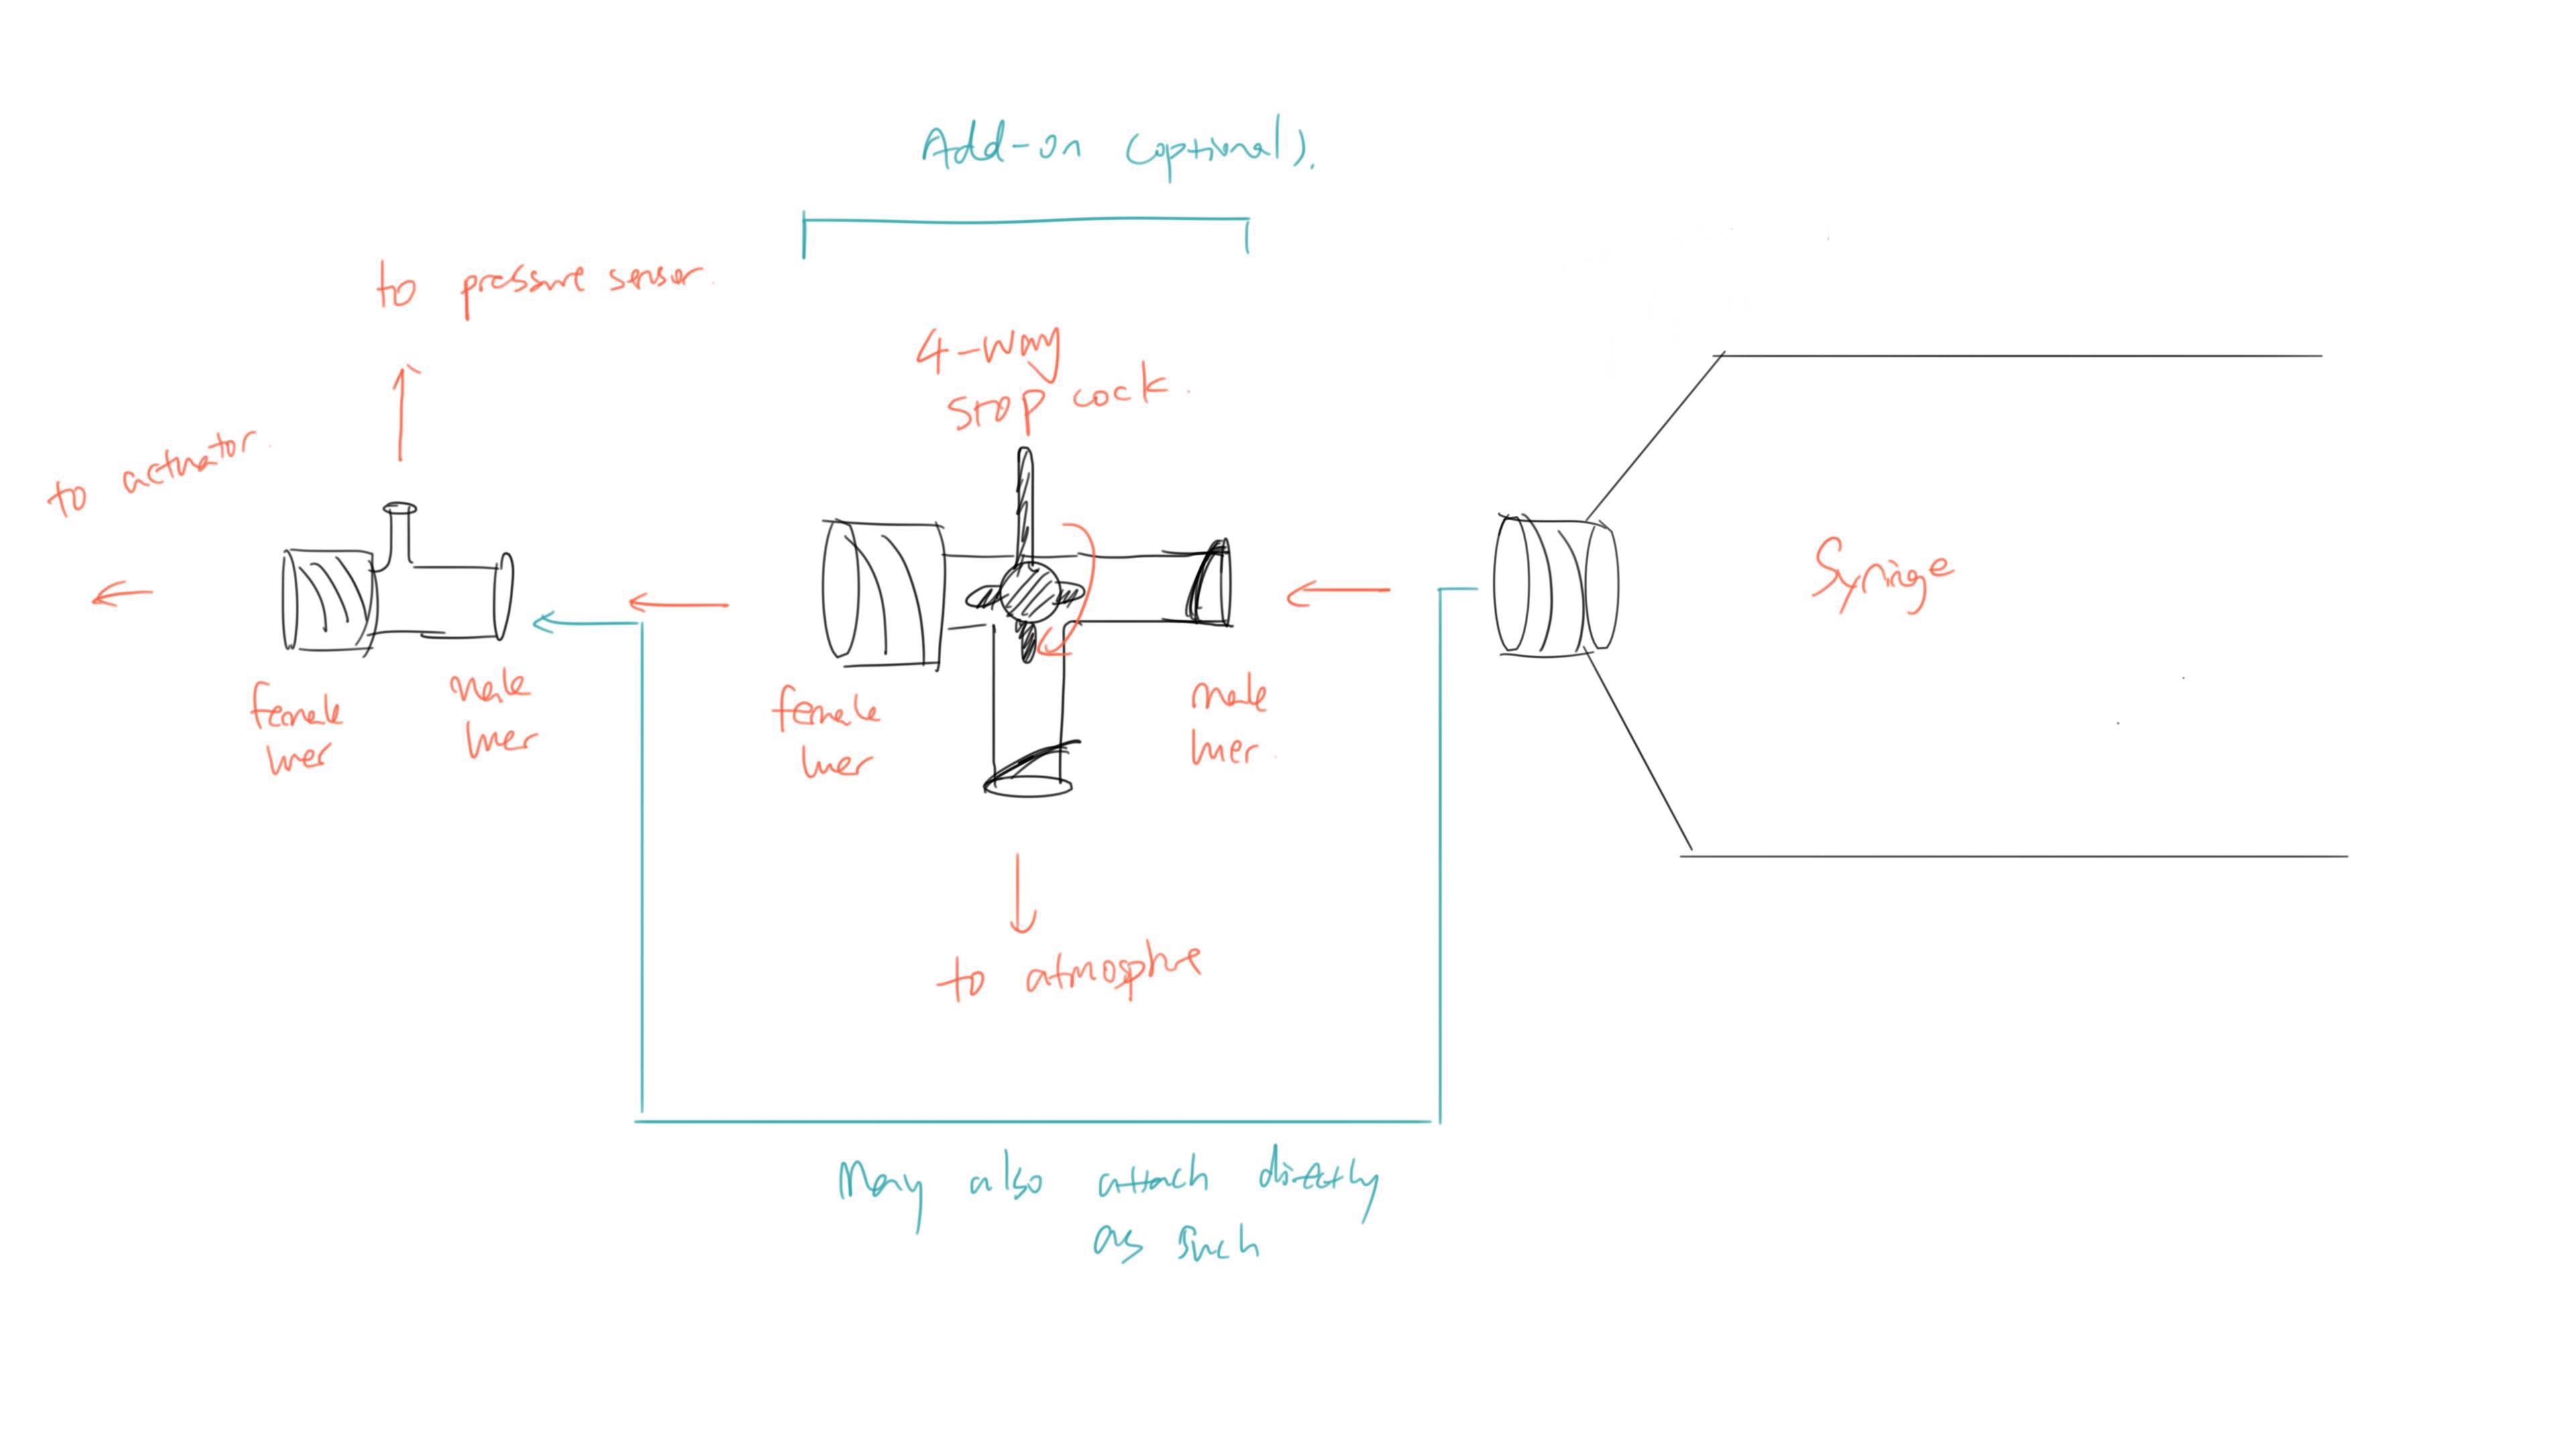 Add-on (optional).
to pressure sensor.
4-way
stop cock.
to actuator.
Syringe
female
luer
male
luer
female
luer
male
luer.
to atmosphre
May also attach directly
as such